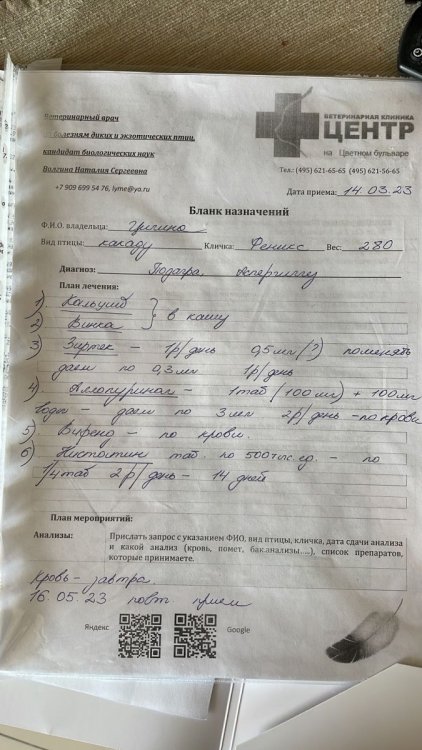 Ветеринарный врач
по болезням диких и экзотических птиц,
кандидат биологических наук
Волгина Наталия Сергеевна
+7 909 699 54 76, lyme@yo.ru
ВЕТЕРИНАРНАЯ КЛИНИКА
ЦЕНТР
на Цветном бульваре
Тел.: (495) 621-65-65 (495) 621-56-65
Дата приема: 14.03.23
Бланк назначений
Ф.И.О. владельца:
Вид птицы: какаду Кличка: Феникс Вес: 280
Диагноз: Подагра аспергиллез
План лечения:
1)
2) Винка } в кашу
3) Зиртек – 1р/день 0,5мл (?) поменять
даем по 0,3мл 1р/день
4) Аллопуринол – 1таб (100мг) + 100мл
воды – даем по 3мл 2р/день – по крови
5) Вифенд – по крови.
6) Нистатин таб. по 500тыс.ед. – по
1/4таб 2р/день – 14 дней
План мероприятий:
Анализы: Прислать запрос с указанием ФИО, вид птицы, кличка, дата сдачи анализа
и какой анализ (кровь, помет, бак.анализы.....), список препаратов,
которые принимаете.
Кровь – завтра.
16.05.23 повт прием
Яндекс Google